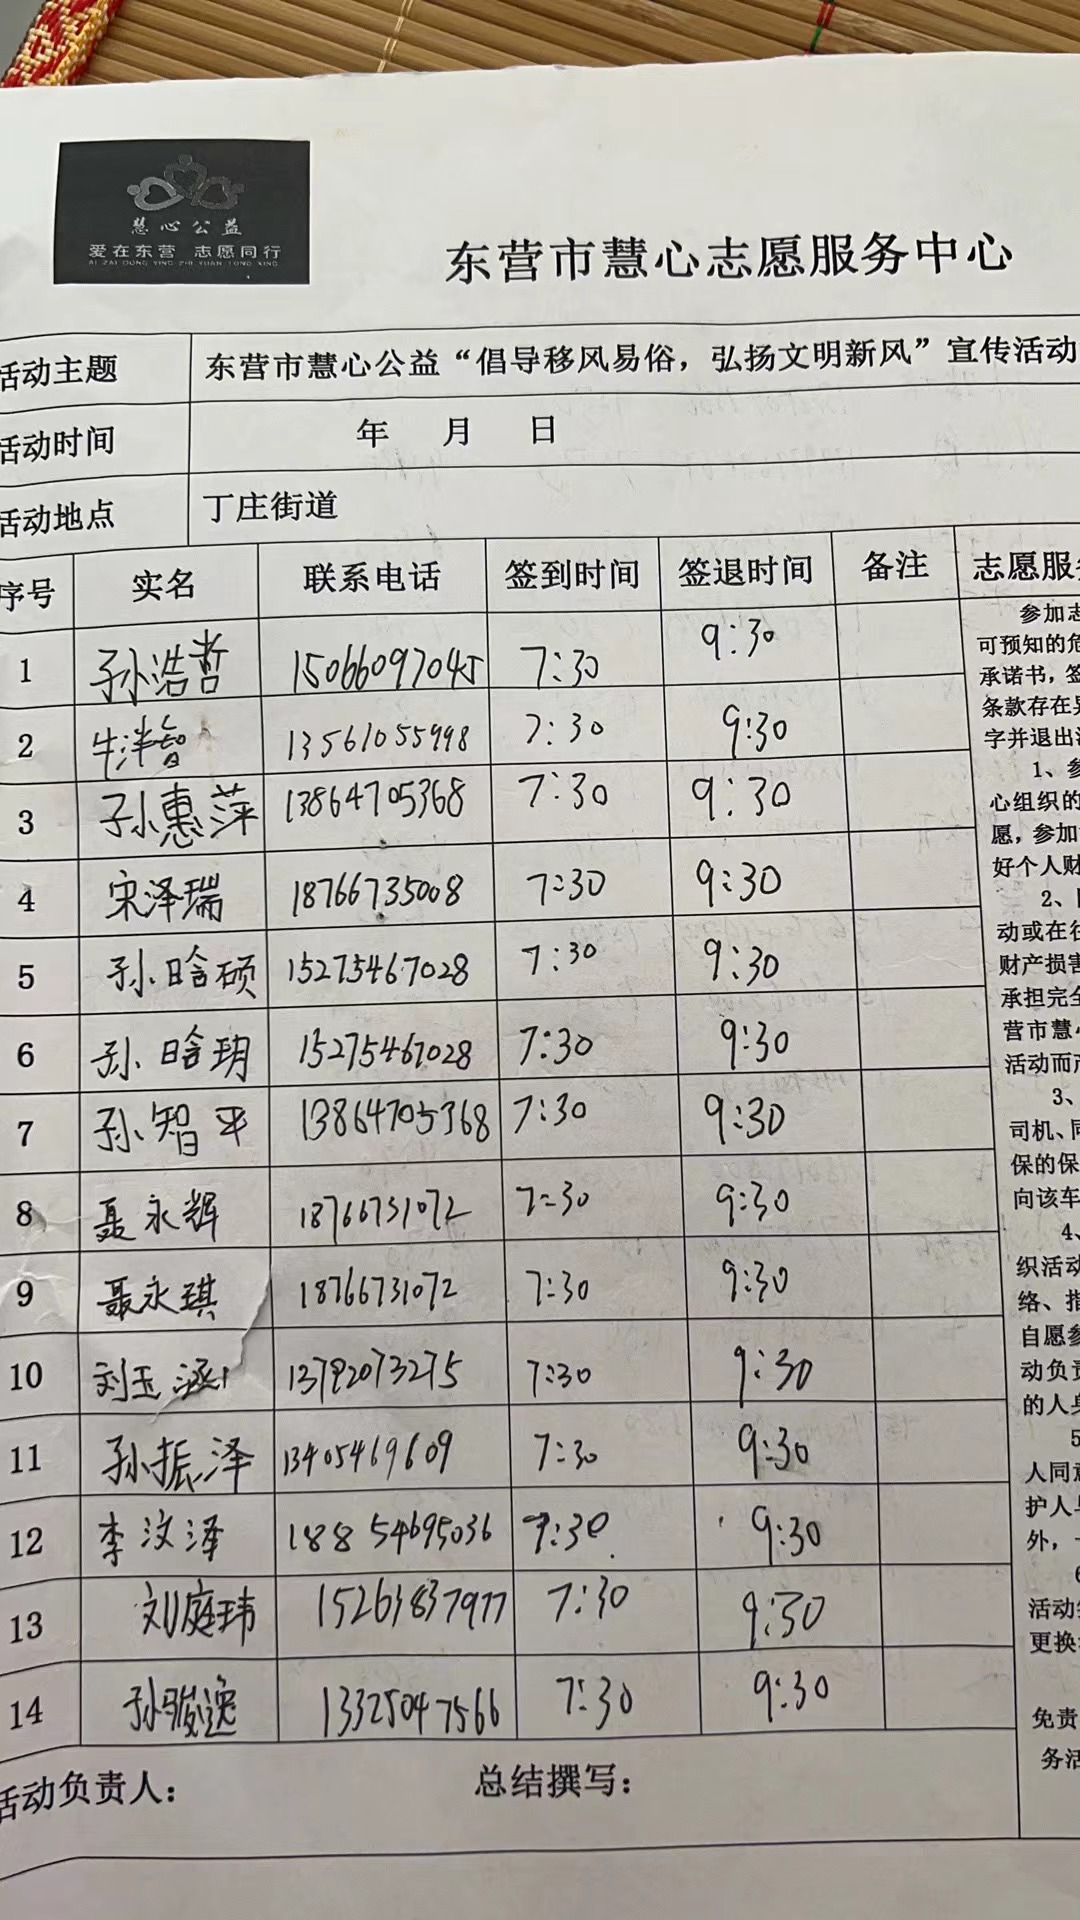 慧心公益
爱在东营 志愿同行
AI ZAI DONG YING ZHI YUAN TONG XING
东营市慧心志愿服务中心
活动主题 东营市慧心公益“倡导移风易俗，弘扬文明新风”宣传活动
活动时间 年 月 日
活动地点 丁庄街道
序号 实名 联系电话 签到时间 签退时间 备注 志愿服务
1 孙浩哲 15066097045 7:30 9:30
2 牛洋智 13561055998 7:30 9:30
3 孙惠萍 13864705368 7:30 9:30
4 宋泽瑞 18766735008 7:30 9:30
5 孙晗硕 15275467028 7:30 9:30
6 孙晗玥 15275467028 7:30 9:30
7 孙智平 13864705368 7:30 9:30
8 聂永辉 18766731072 7:30 9:30
9 聂永琪 18766731072 7:30 9:30
10 刘玉涵 13792073275 7:30 9:30
11 孙振泽 13405469609 7:30 9:30
12 李汶泽 18854695036 7:30 9:30
13 刘庭玮 15263837977 7:30 9:30
14 孙骏逸 13325047566 7:30 9:30
参加志
可预知的危
承诺书，签
条款存在异
字并退出活
1、参
心组织的
愿，参加
好个人财
2、
动或在往
财产损害
承担完全
营市慧心
活动而产
3、
司机、同
保的保
向该车
4、
织活动
络、指
自愿参
动负责
的人身
5
人同意
护人与
外，
6
活动结
更换
免责
务活
活动负责人： 总结撰写：